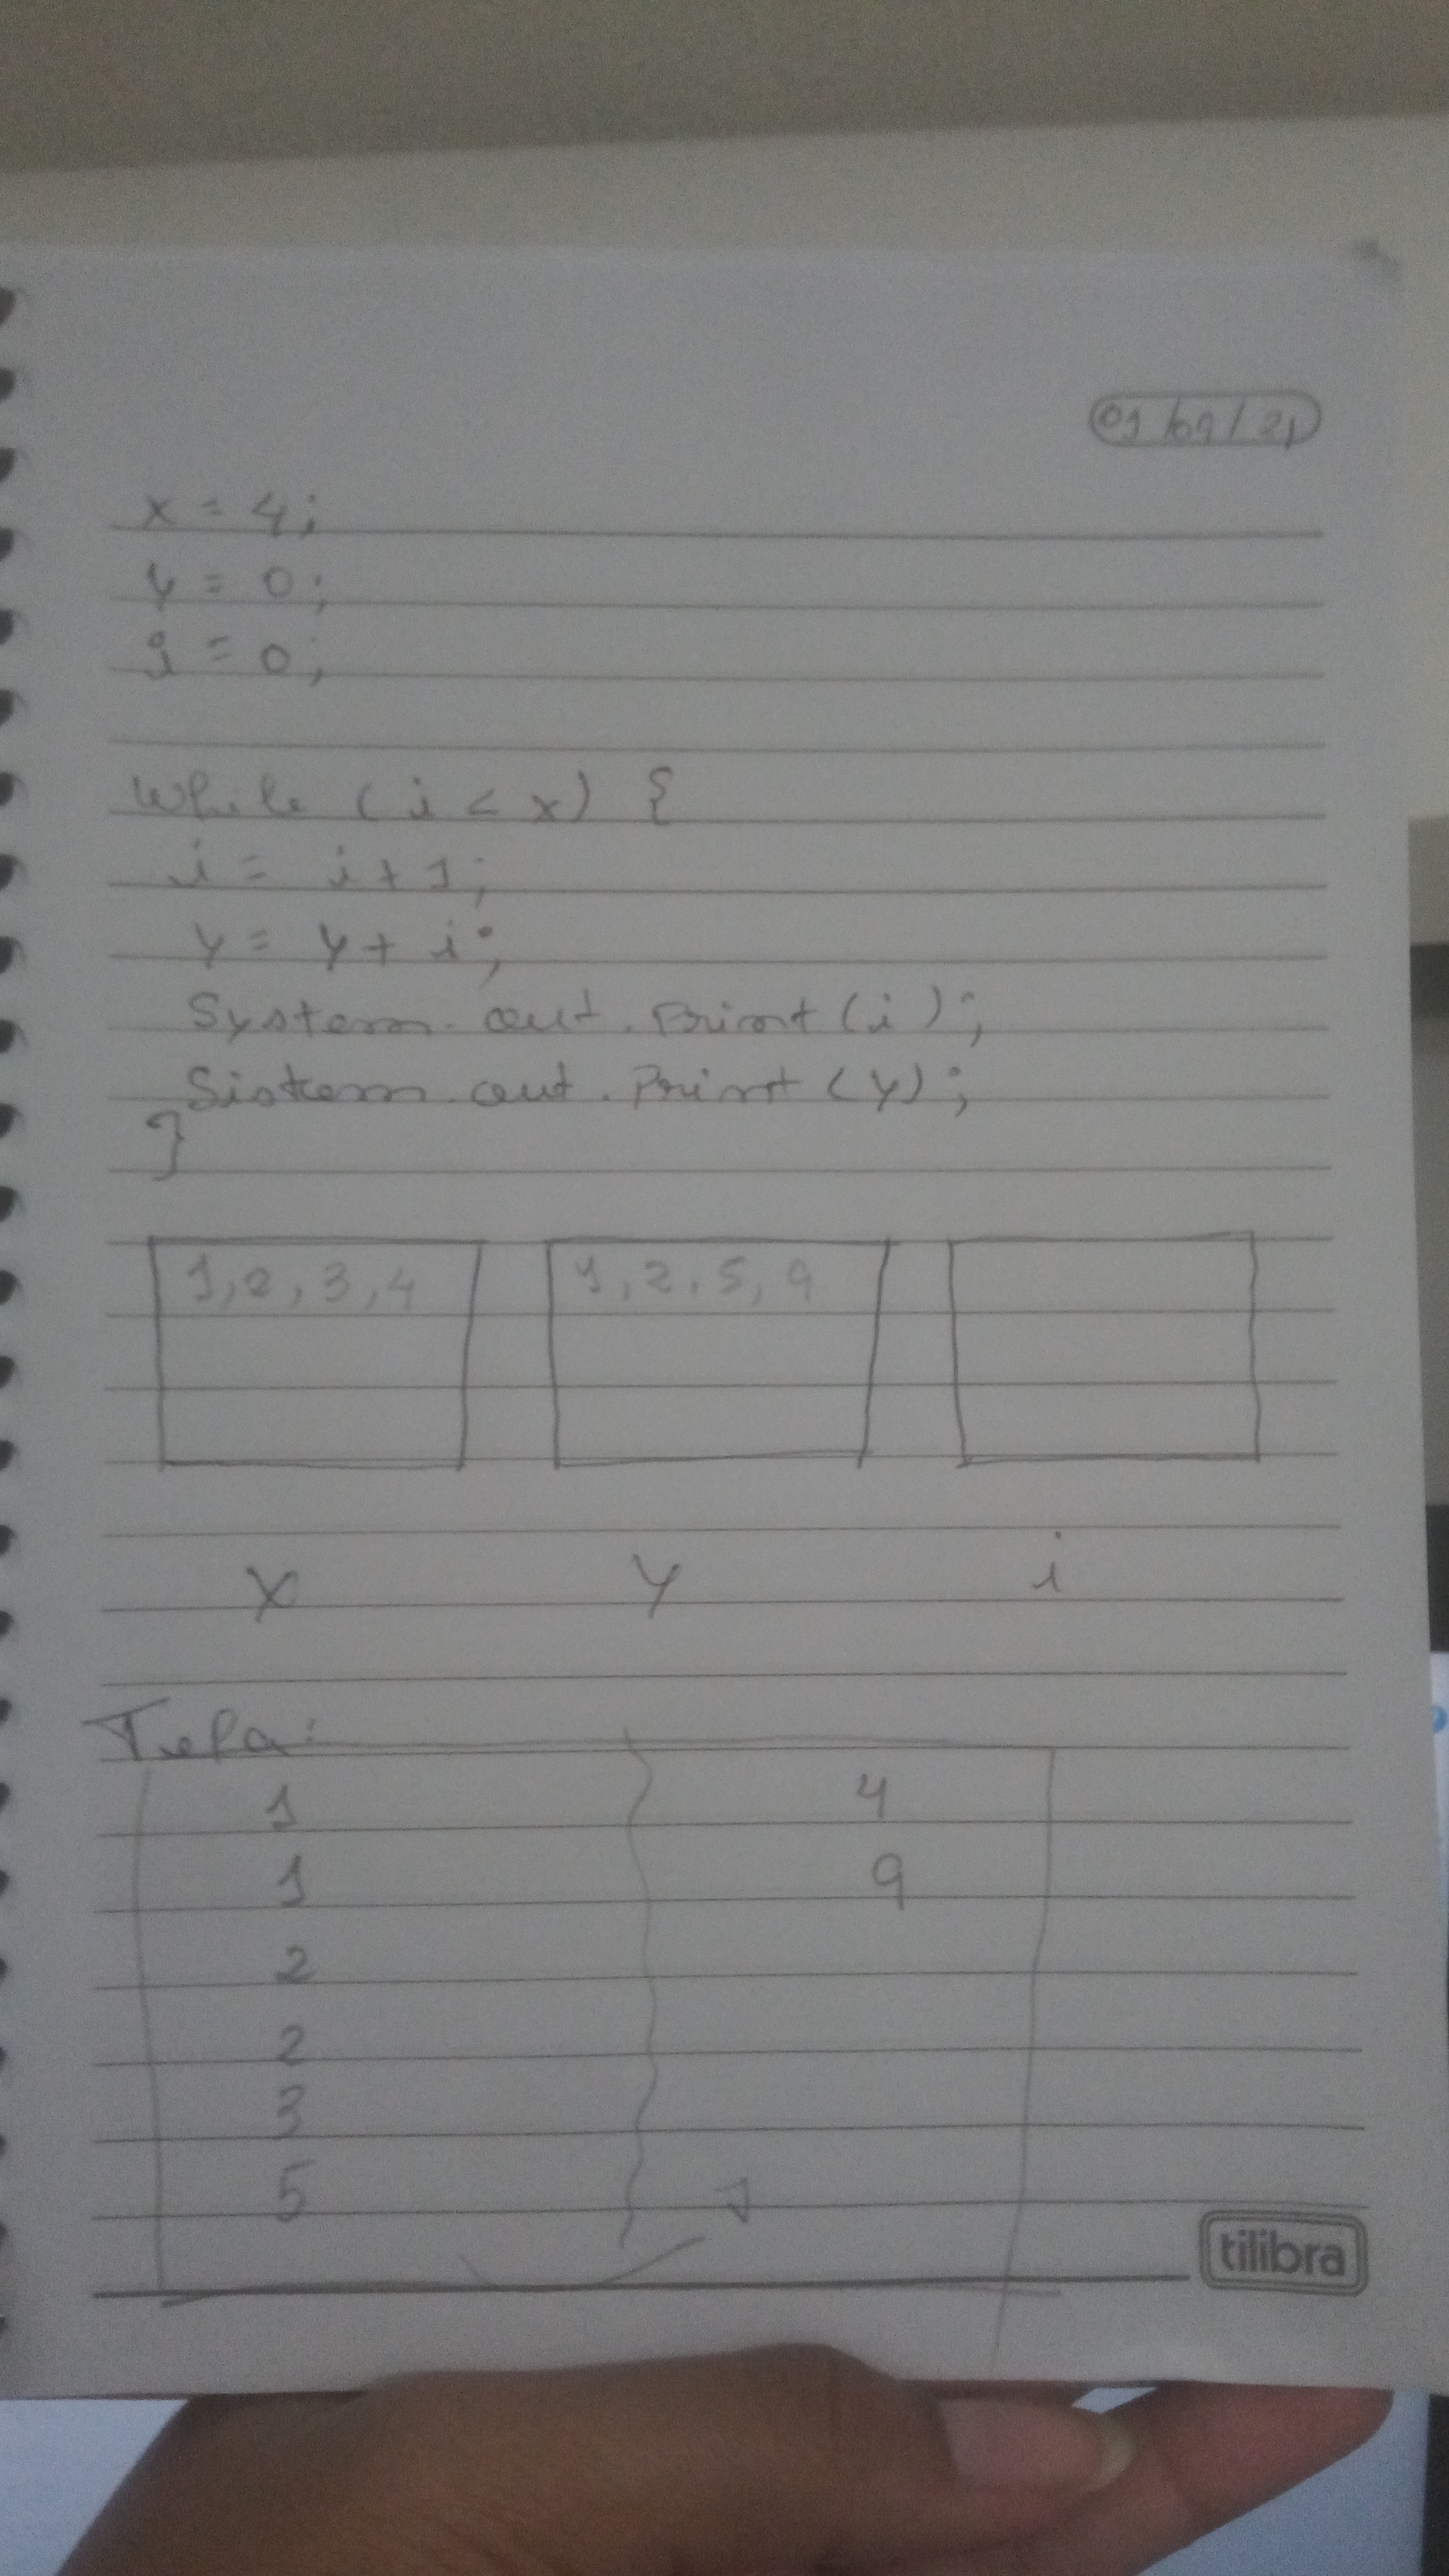 01/09/21
x = 4;
y = 0;
i = 0;
While (i < x) {
i = i + 1;
y = y + i;
System.out.Print(i);
Sistem.out.Print(y);
}
1,2,3,4 1,2,5,9
x y i
Tela:
1 4
1 9
2
2
3
5
tilibra